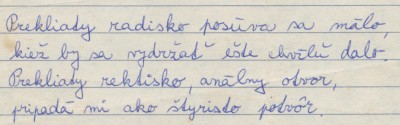 Prekliaty radisko posúva sa málo,
kiež by sa vydržať ešte chvíľu dalo.
Prekliaty rektisko, análny otvor,
pripadá mi ako štyristo potvôr.